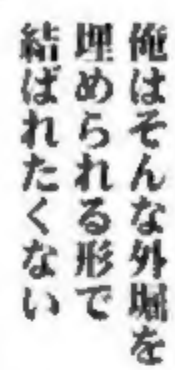 俺はそんな外堀を
埋められる形で
結ばれたくない